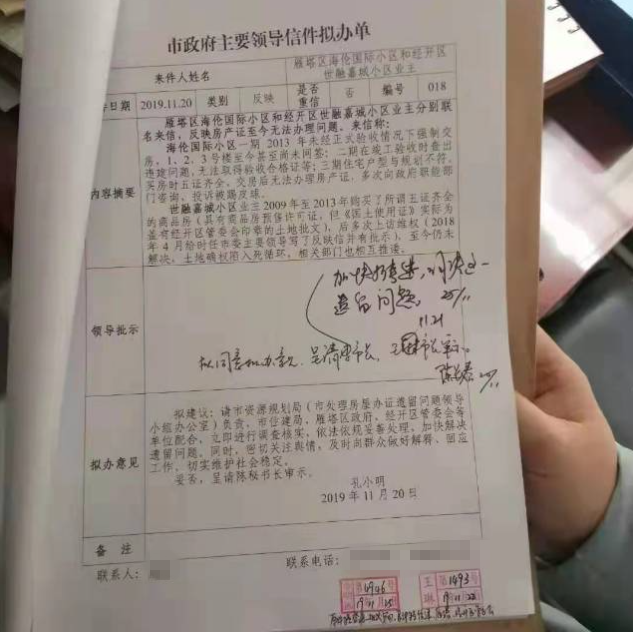 市政府主要领导信件拟办单
来件人姓名
雁塔区海伦国际小区和经开区
世融嘉城小区业主
日期 2019.11.20 类别 反映 是否重信 否 编号 018
内容摘要
雁塔区海伦国际小区和经开区世融嘉城小区业主分别联
名来信，反映房产证至今无法办理问题。来信称：
海伦国际小区一期 2013 年未经正式验收情况下强制交
房，1、2、3 号楼至今甚至尚未网签；二期在竣工验收时查出
违建问题，无法取得验收合格证等；三期住宅户型与规划不符，
买房时五证齐全，交房后无法办理房产证，多次向政府职能部
门咨询、投诉被踢皮球。
世融嘉城小区业主 2009 年至 2013 年购买了所谓五证齐全
的商品房（具有商品房预售许可证，但《国土使用证》实际为
盖有经开区管委会印章的土地批文），后多次上访维权（2018
年 4 月给时任市委主要领导写了反映信并有批示），至今仍未
解决，土地确权陷入死循环，相关部门也相互推诿。
领导批示
加快
遗留问题
11.21
拟同意拟办意见
拟办意见
拟建议：请市资源规划局（市处理房屋办证遗留问题领导
小组办公室）负责，市住建局、雁塔区政府、经开区管委会等
单位配合，立即进行调查核实，依法依规妥善处理，加快解决
遗留问题。同时，密切关注舆情，及时向群众做好解释、回应
工作，切实维护社会稳定。
妥否，呈请陈秘书长审示。
孔小明
2019 年 11 月 20 日
备 注
联系人：
联系电话：